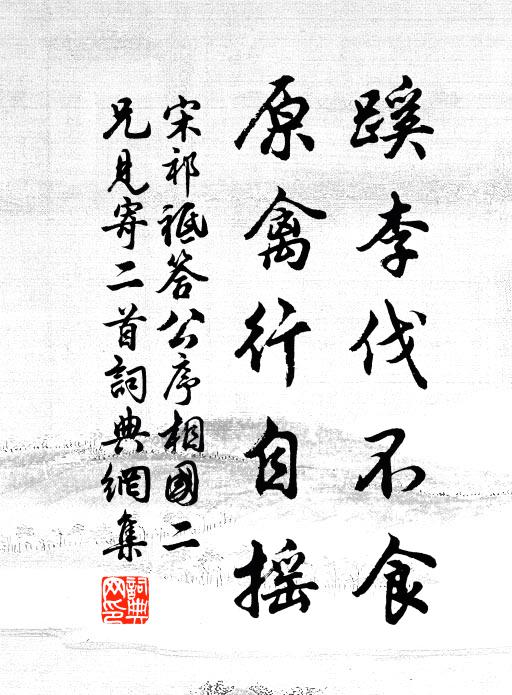 蹊李伐不食
原禽行自摇
宋祁祗答公序相國二
兄見寄二首詞典網集
詞典网印